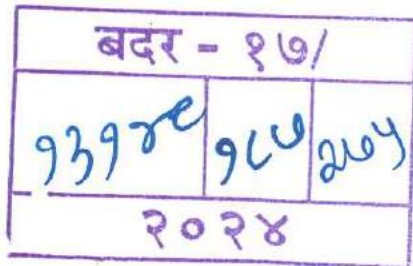 बदर - १७/
१३१४९ १८७ २७५
२०२४